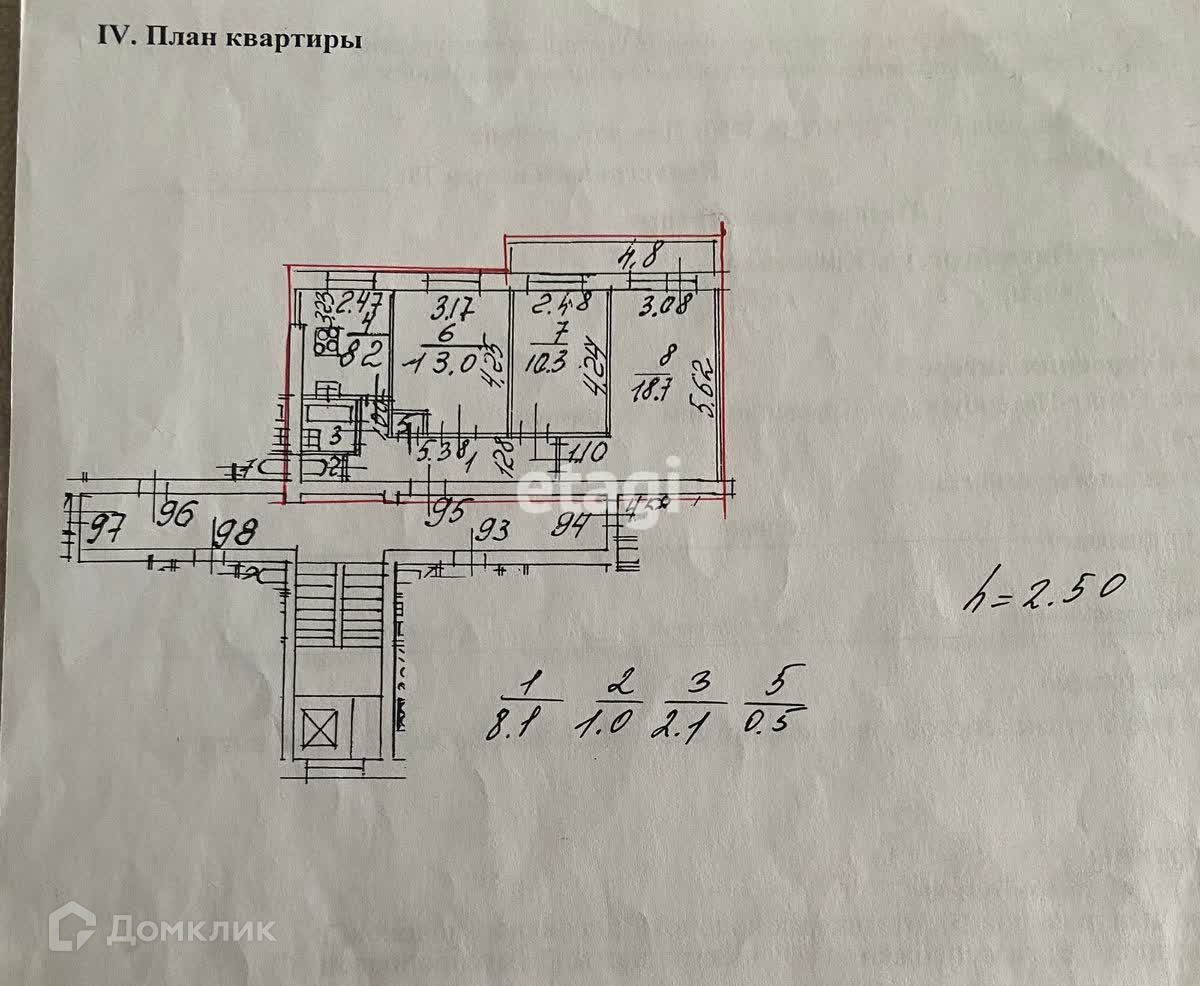 IV. План квартиры
4,8
2.47 3.17 2.48 3.08
3.23 4 6 7 8
8.2 13.0 10.3 18.7
4,25 4,24 5,62
3 5
5.38 1 1.28 1.10
2
etagi
97 96 98 95 93 94
h=2.50
1 2 3 5
8.1 1.0 2.1 0.5
Домклик